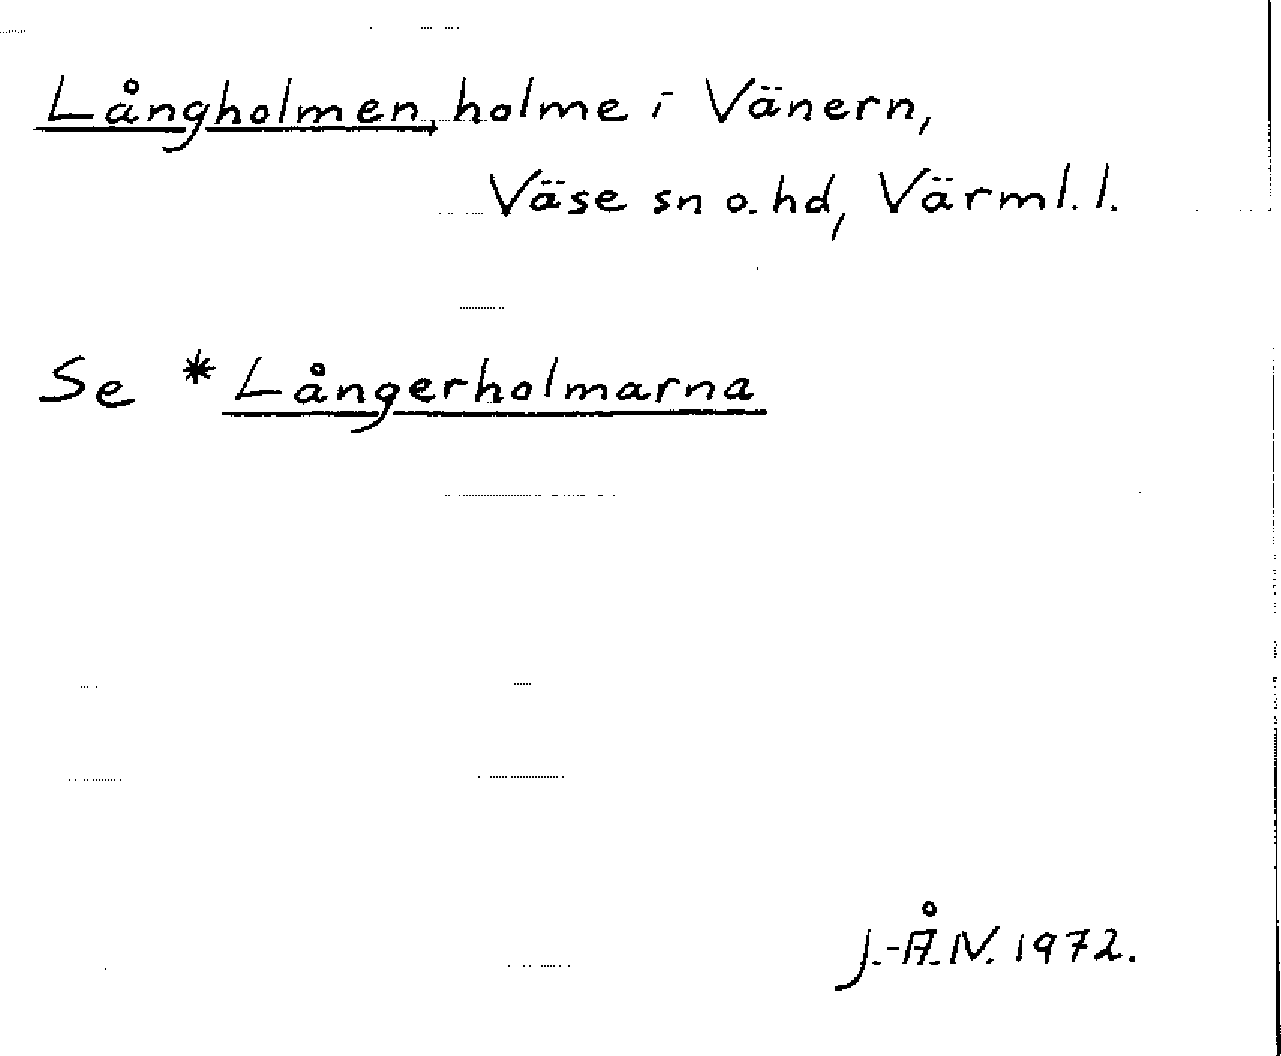 Långholmen, holme i Vänern,
Väse sn o. hd, Värml. l.
Se * Långerholmarna
J.-Å. N. 1972.